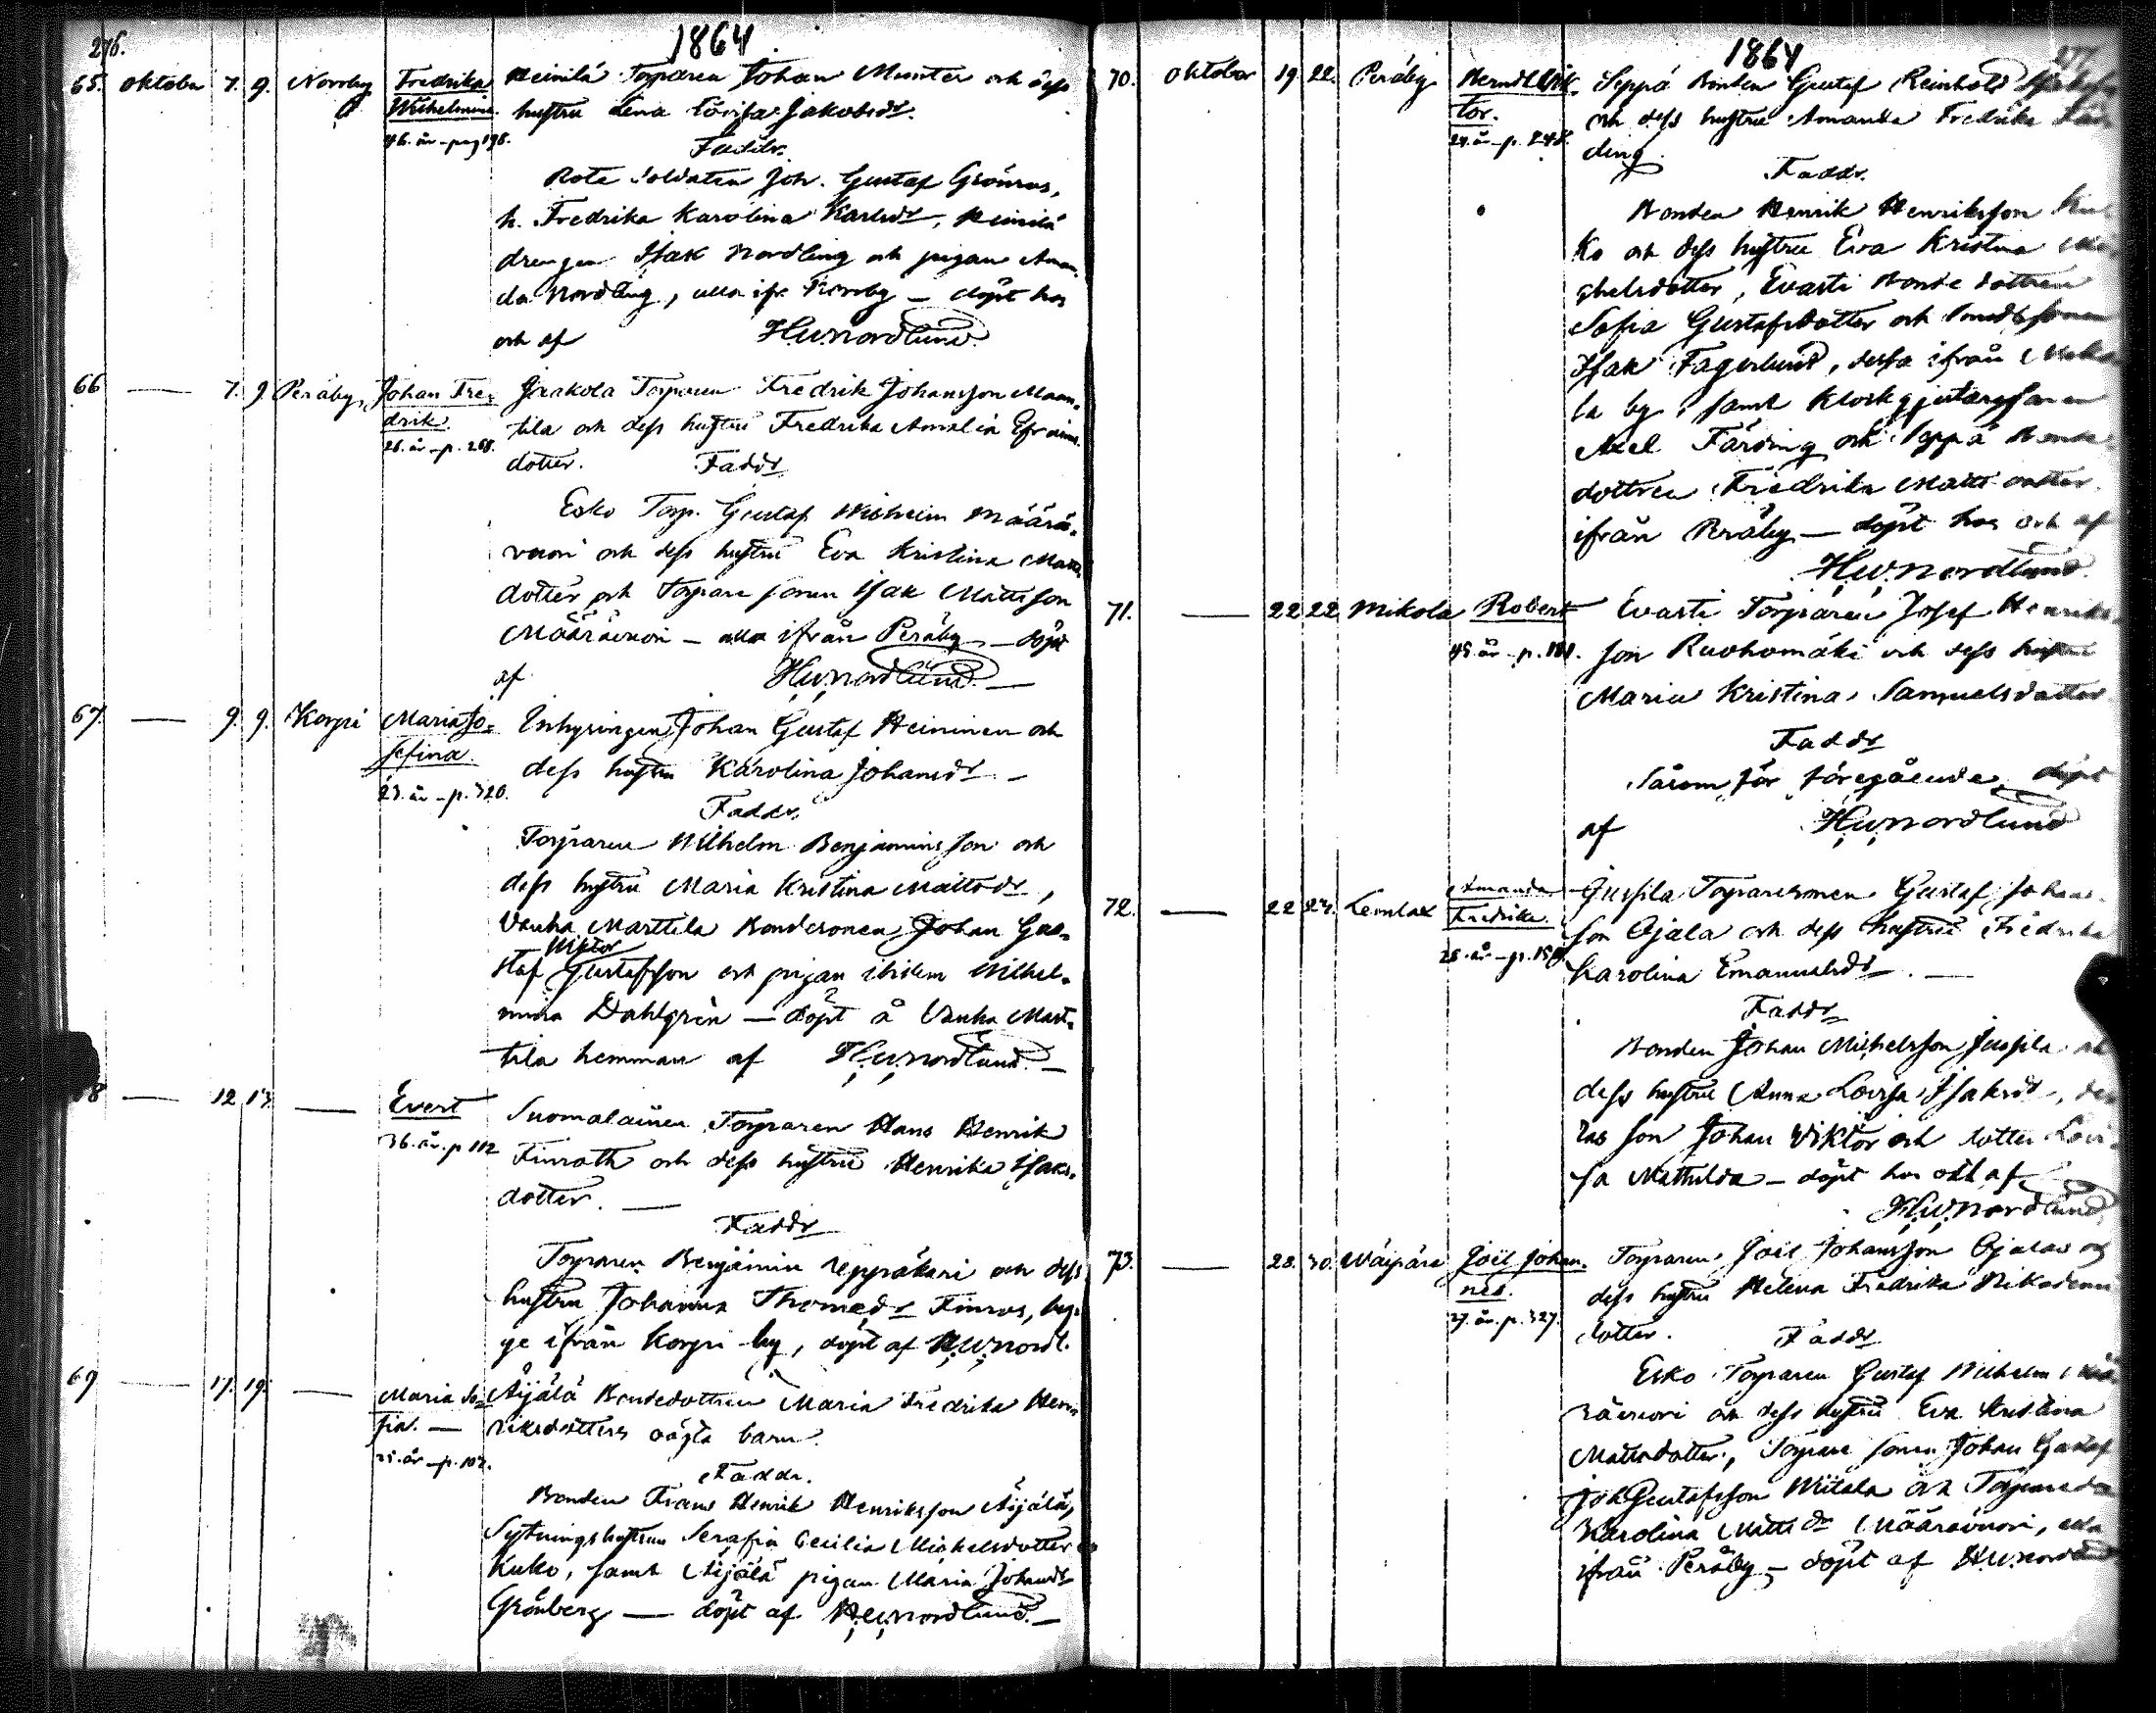 276.
1864
65. oktober 7. 9. Norrby Fredrika Wilhelmina. 46. år - pag 196.
Heinilä Torparen Johan Munter och dess
hustru Lena Lovisa Jakobsdr.
Faddr.
Rote Soldaten Joh. Gustaf Grönros,
h. Fredrika Karolina Karlsdr, Heinilä
drengen Isak Nordling och pigan Aman-
da Nordling, alla ifr. Norrby — döpt hos
och af H.W.Nordlund
66 — 7. 9. Peräby, Johan Fre-
drik. 26. år - p. 268.
Jaakola Torparen Fredrik Johansson Maun-
tila och dess hustru Fredrika Amalia Efraims-
dotter. Faddr
Esko Torp. Gustaf Wilhelm Määrä-
vuori och dess hustru Eva Kristina Matts
dotter och Torpare sonen Isak Mattsson
Määrävuori — alla ifrån Peräby — döpt
af H.W.Nordlund. —
67. — 9. 9. Korpi Maria Jo-
sefina. 23. år - p. 320.
Inhysingen Johan Gustaf Heininen och
dess hustru Karolina Johansdr —
Faddr.
Torparen Wilhelm Benjaminsson och
dess hustru Maria Kristina Mattsdr,
Vanha Marttila Bondesonen Johan Gus-
Viktor
taf Gustafsson och pigan ibidem Wilhel-
mina Dahlgrén — döpt å Vanha Mart-
tila hemman af H.W.Nordlund. —
68 — 12 13. — Evert 36. år. p 112
Suomalainen Torparen Hans Henrik
Finroth och dess hustru Henrika Isaks-
dotter. —
Faddr
Torparen Benjamin Seppräkari och dess
hustru Johanna Thomasdr Finros, beg-
ge ifrån Korpi by, döpt af H.W.Nordl.
69 — 17. 19. — Maria So-
fia. — 25. år - p. 102.
Äijälä Bondedottren Maria Fredrika Hen-
riksdotters oägta barn.
Faddr.
Bonden Frans Henrik Henriksson Äijälä,
Sytningshustrun Serafia Cecilia Michelsdotter
Kuko, samt Äijälä pigan Maria Johansdr
Grönberg — döpt af H.W.Nordlund. —
1864
70. oktober 19. 22. Peräby Berndt Vik-
tor. 24. år - p. 248.
Seppä Bonden Gustaf Reinhold
och dess hustru Amanda Fredrika Fär-
ding.
Faddr.
Bonden Henrik Henriksson Kuc
ko och dess hustru Eva Kristina Mi
chelsdotter, Evarti Bonde dottren
Sofia Gustafsdotter och
Isak Fagerlund, dessa ifrån Miko
la by, samt Klockgjutaresonen
Axel Färding och Seppä Bonde
dottren Fredrika Matts dotter.
ifrån Peräby — döpt hos och af
H.W.Nordlund.
71. — 22 22 Mikola Robert 45. år - p. 181.
Evarti Torparen Josef Henriks-
son Ruohomäki och dess hustru
Maria Kristina Samuelsdotter
Faddr
Såsom för föregående, döpt
af H.W.Nordlund
72. — 22 23. Lemlax Amanda
Fredrika. 28. år - p. 158.
Jussila Torparesonen Gustaf Johans-
son Ojala och dess hustru Fredrika
Karolina Emanuelsdr. —
Faddr
Bonden Johan Michelsson Jussila och
dess hustru Anna Lovisa Isaksdr, des
ras son Johan Viktor och dotter Lovi-
sa Mathilda — döpt hos och af
H.W.Nordlund
73. — 28. 30. Wäipäre Joël Johan-
nes. 27. år. p. 327.
Torparen Joël Johansson Ojalas och
dess hustru Helena Fredrika Nikodemi
dotter. Faddr
Esko Torparen Gustaf Wilhelm Mää
rävuori och dess hustru Eva Kristina
Mattsdotter, Torpare sonen Johan Gustaf
Joh Gustafsson Mitala och
Karolina Mattsdr Määrävuori, alla
ifrån Peräby — döpt af H.W.Nordlund